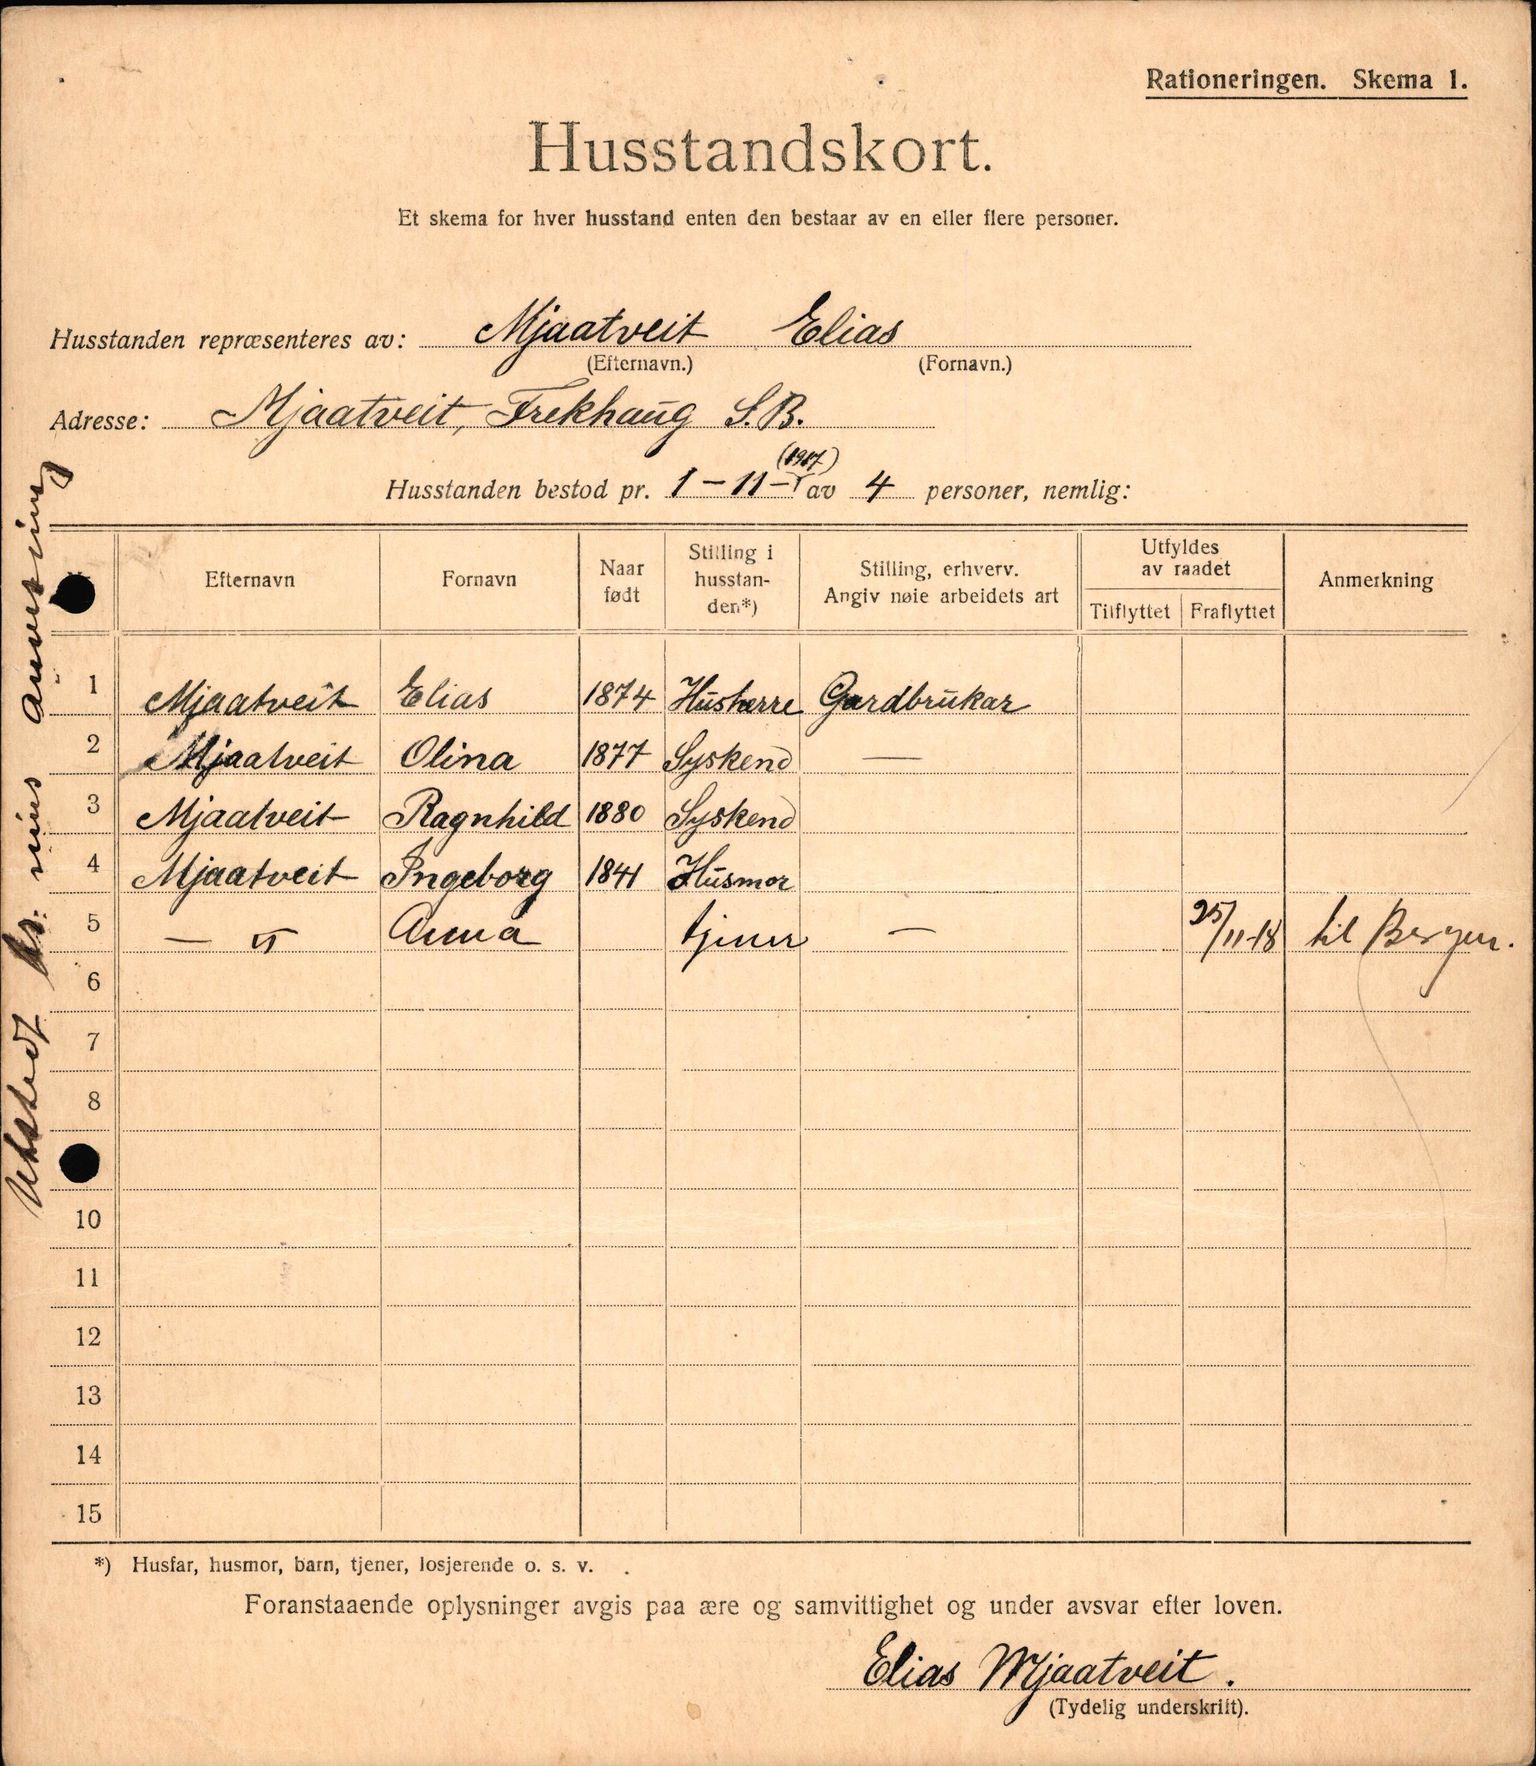 Rationeringen. Skema 1.
Husstandskort.
Et skema for hver husstand enten den bestaar av en eller flere personer.
Husstanden repræsenteres av: Mjaatveit Elias
(Efternavn.) (Fornavn.)
Adresse: Mjaatveit, Frekhaug S.B.
(1917)
Husstanden bestod pr. 1-11- av 4 personer, nemlig:
Efternavn Fornavn Naar født Stilling i husstan-den*) Stilling, erhverv. Angiv nøie arbeidets art Utfyldes av raadet Tilflyttet Fraflyttet Anmerkning
1 Mjaatveit Elias 1874 Husherre Gardbrukar
2 Mjaatveit Olina 1877 Syskend —
3 Mjaatveit Ragnhild 1880 Syskend
4 Mjaatveit Ingeborg 1841 Husmor
5 — " Anna tjener — 25/11-18 til Bergen.
6
7
8
10
11
12
13
14
15
*) Husfar, husmor, barn, tjener, losjerende o. s. v.
Foranstaaende oplysninger avgis paa ære og samvittighet og under avsvar efter loven.
Elias Mjaatveit.
(Tydelig underskrift).
Utstedt